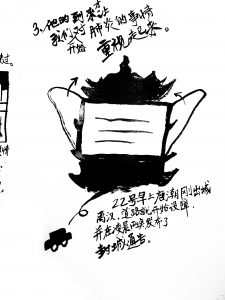 3. 他的到来才让
我们这对肺炎的事情
开始重视起来。
22号早上唐潮刚出城
离汉,道路就开始设障,
并在凌晨两点发布了
封城通告。